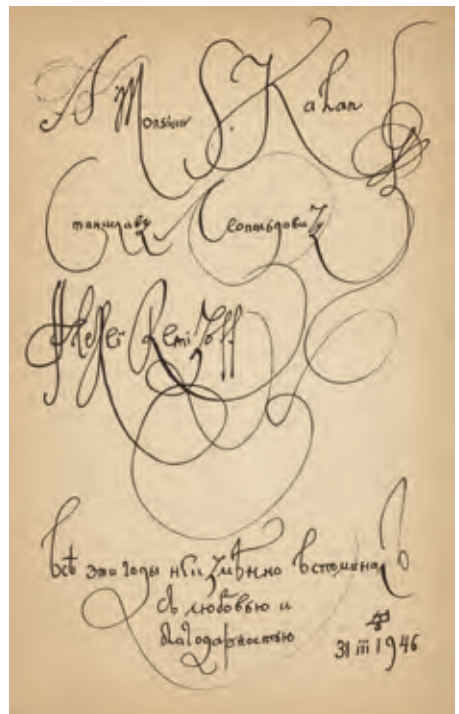 A Monsieur S. Kahan
Станиславу Леопольдовичу
Alexei Remizoff
всѣ эти годы неизмѣнно вспоминаю
съ любовью и
благодарностью
31 iii 1946